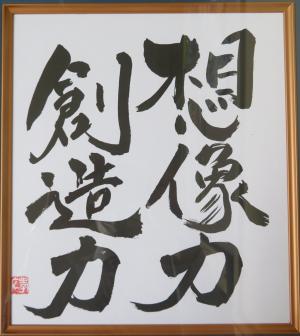 想像力
創造力